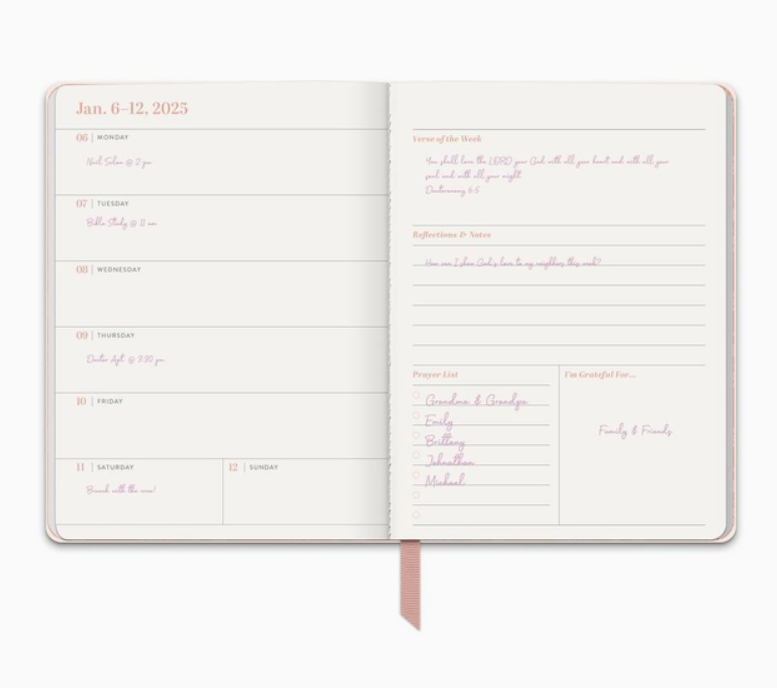 Jan. 6–12, 2025
06 | MONDAY
Nail Salon @ 2 pm
07 | TUESDAY
Bible Study @ 11 am
08 | WEDNESDAY
09 | THURSDAY
Doctor Apt. @ 3:30 pm
10 | FRIDAY
11 | SATURDAY
Brunch with the crew!
12 | SUNDAY
Verse of the Week
You shall love the LORD your God with all your heart and with all your
soul and with all your might
Deuteronomy 6:5
Reflections & Notes
How can I show God's love to my neighbors this week?
Prayer List
Grandma & Grandpa
Emily
Brittany
Johnathan
Michael
I'm Grateful For...
Family & Friends